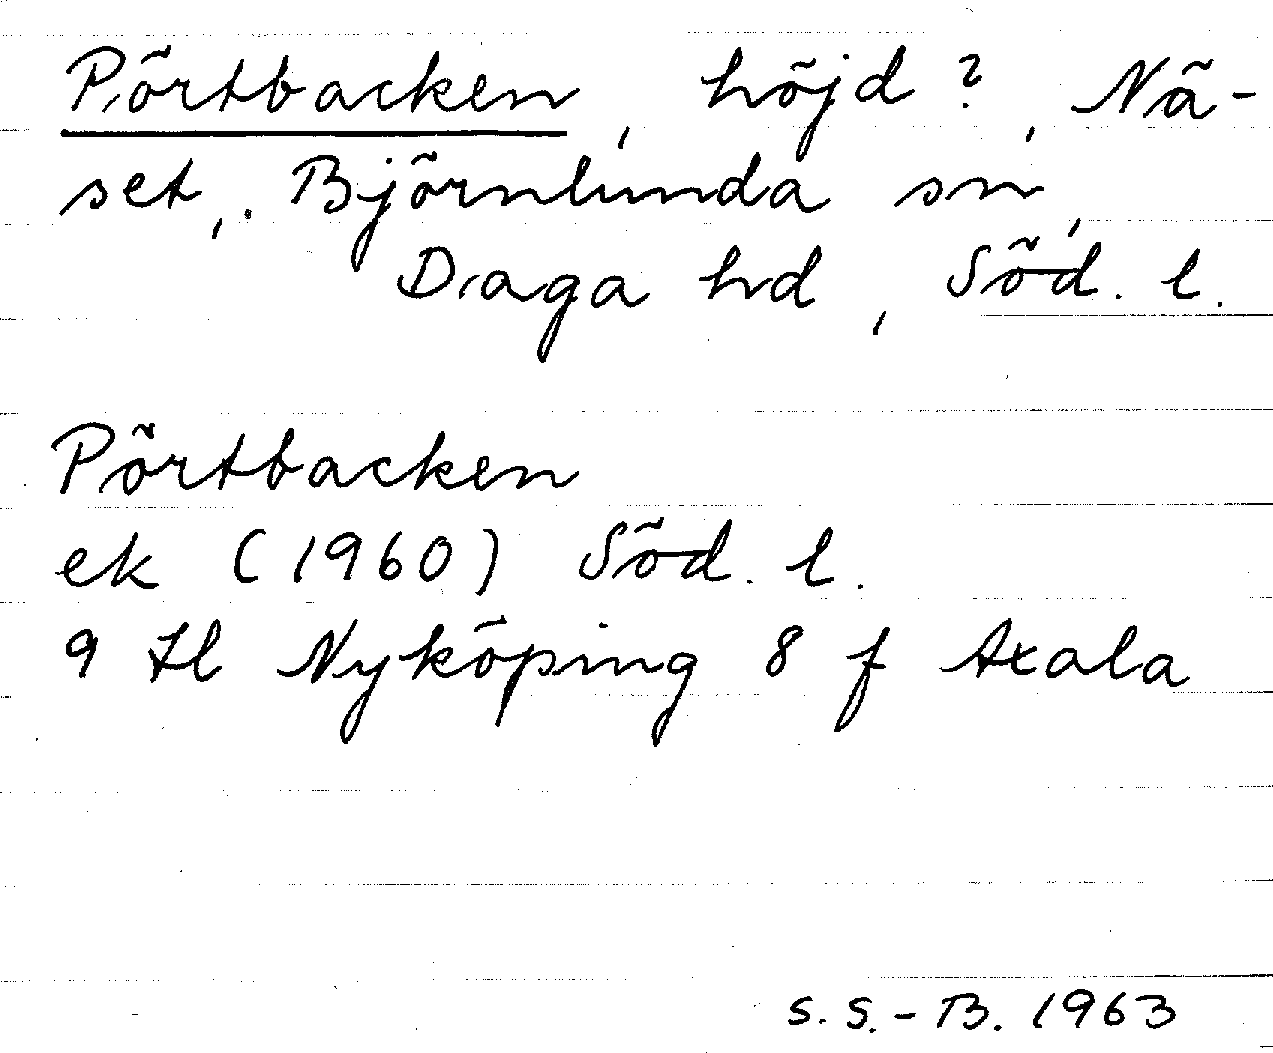 Pörtbacken, höjd?, Nä-
set, Björnlunda sn,
Daga hd, Söd. l.
Pörtbacken
ek (1960) Söd. l.
9 H l Nyköping 8 f Axala
S. S.-B. 1963